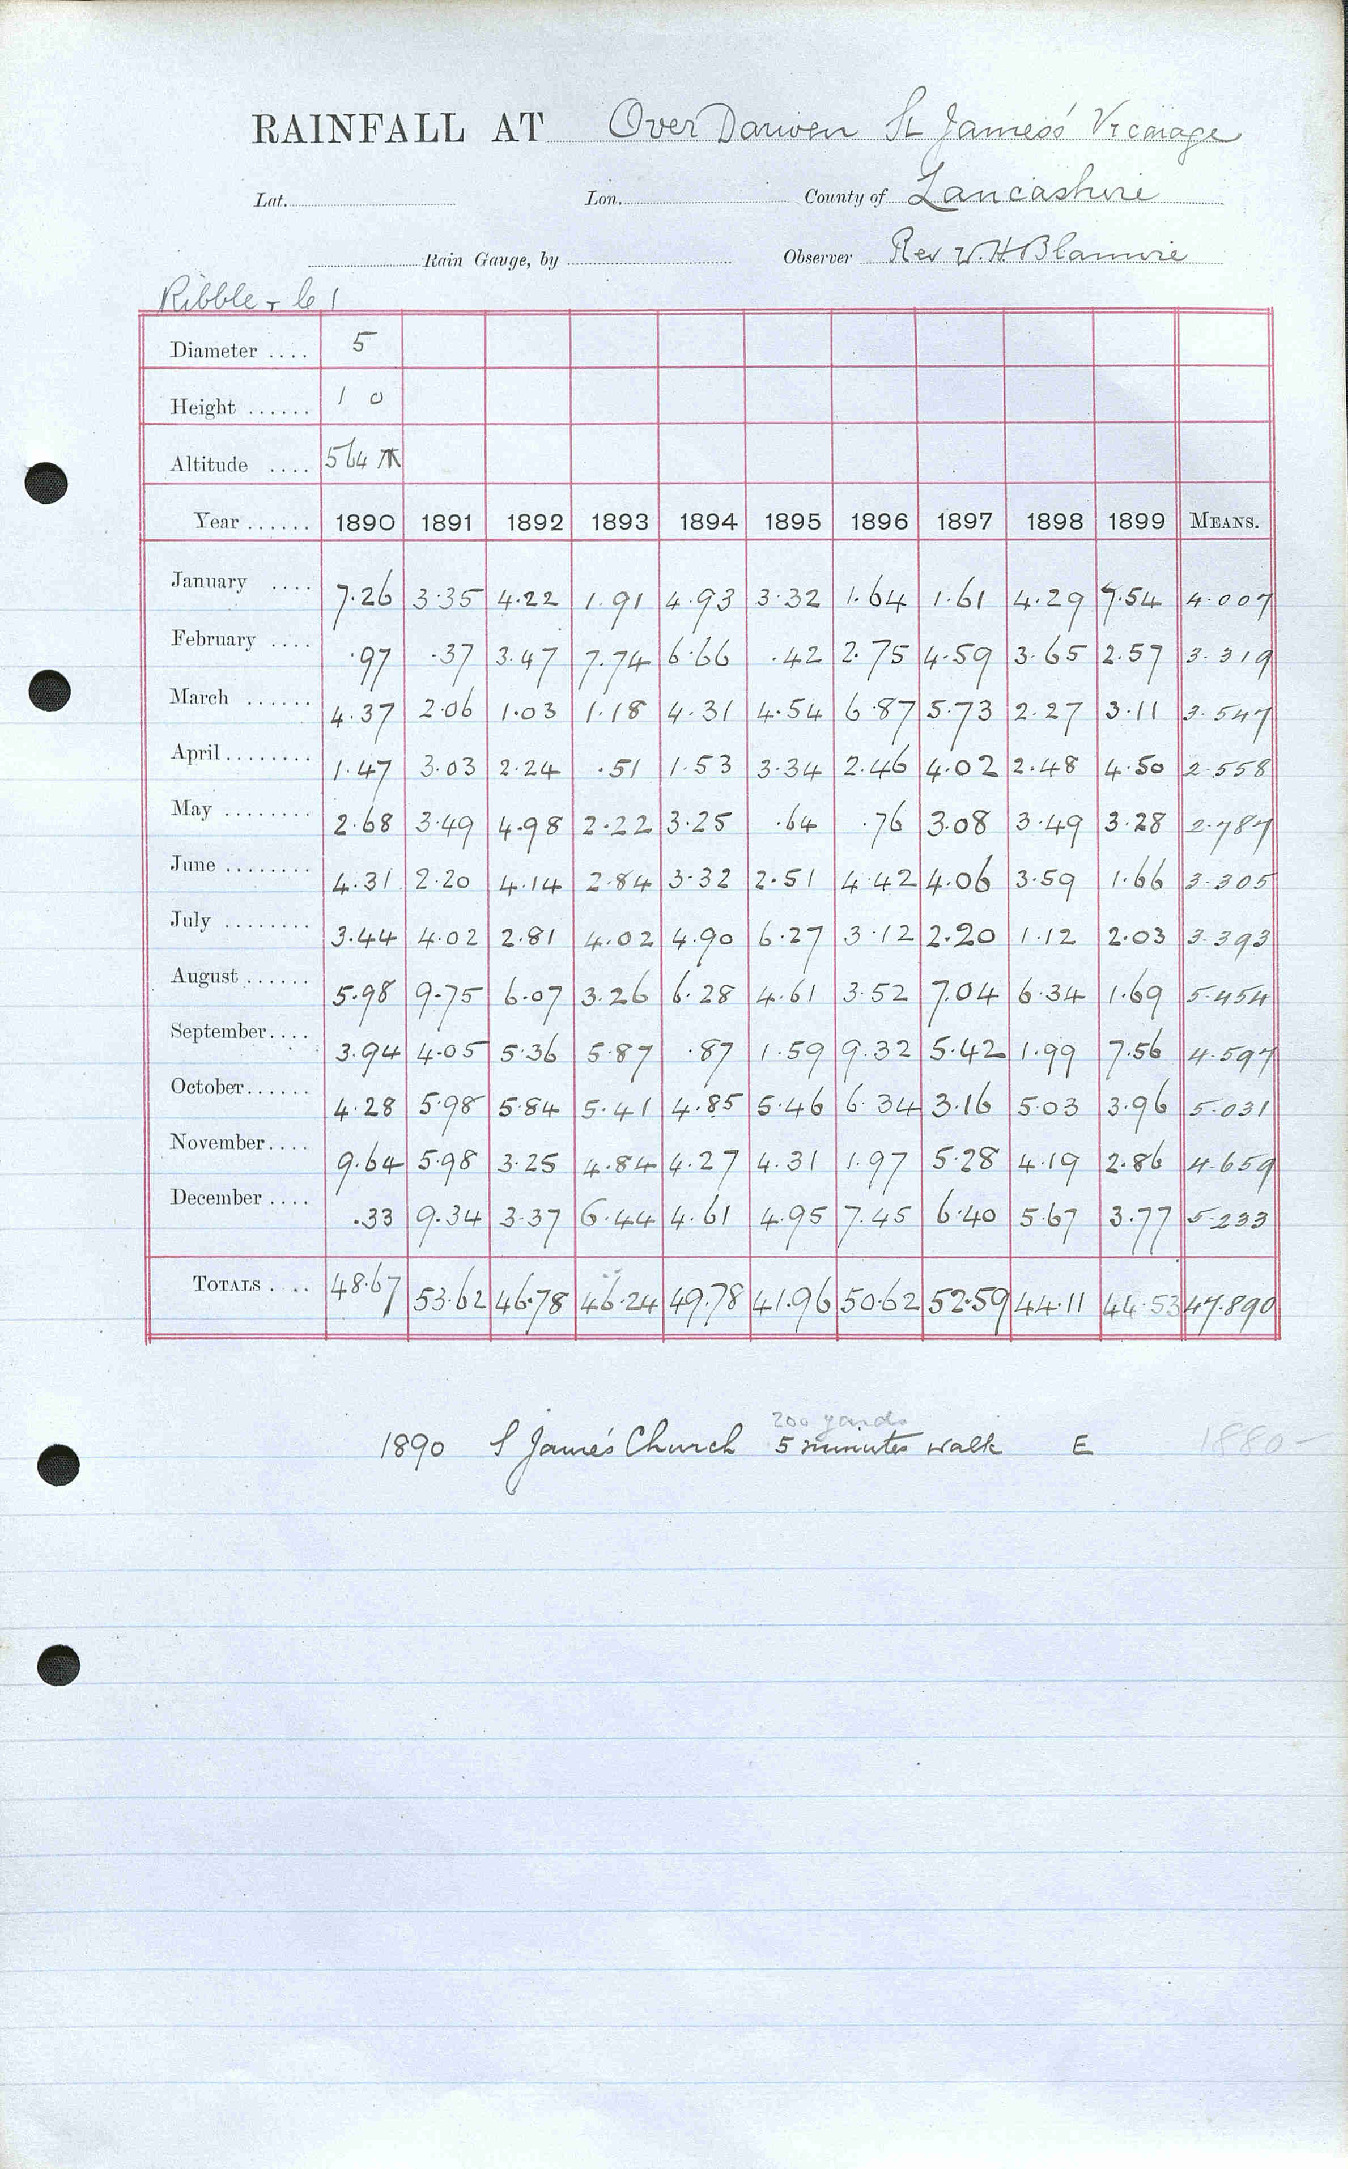 RAINFALL AT Over Darwen St James's Vicarage
Lat. Lon. County of Lancashire
Rain Gauge, by Observer Rev W. H Blamire
Ribble
Diameter .... 5
Height ...... 1 0
Altitude .... 564
Year ...... 1890 1891 1892 1893 1894 1895 1896 1897 1898 1899 MEANS.
January .... 7.26 3.35 4.22 1.91 4.93 3.32 1.64 1.61 4.29 7.54 4.007
February .... .97 .37 3.47 7.74 6.66 .42 2.75 4.59 3.65 2.57 3.319
March ...... 4.37 2.06 1.03 1.18 4.31 4.54 6.87 5.73 2.27 3.11 3.547
April ........ 1.47 3.03 2.24 .51 1.53 3.34 2.46 4.02 2.48 4.50 2.558
May ........ 2.68 3.49 4.98 2.22 3.25 .64 .76 3.08 3.49 3.28 2.787
June ........ 4.31 2.20 4.14 2.84 3.32 2.51 4.42 4.06 3.59 1.66 3.305
July ........ 3.44 4.02 2.81 4.02 4.90 6.27 3.12 2.20 1.12 2.03 3.393
August ...... 5.98 9.75 6.07 3.26 6.28 4.61 3.52 7.04 6.34 1.69 5.454
September .... 3.94 4.05 5.36 5.87 .87 1.59 9.32 5.42 1.99 7.56 4.597
October ...... 4.28 5.98 5.84 5.41 4.85 5.46 6.34 3.16 5.03 3.96 5.031
November .... 9.64 5.98 3.25 4.84 4.27 4.31 1.97 5.28 4.19 2.86 4.659
December .... .33 9.34 3.37 6.44 4.61 4.95 7.45 6.40 5.67 3.77 5.233
TOTALS .... 48.67 53.62 46.78 46.24 49.78 41.96 50.62 52.59 44.11 44.53 47.890
200 yards
1890 S James's Church 5 minutes walk E 1880-